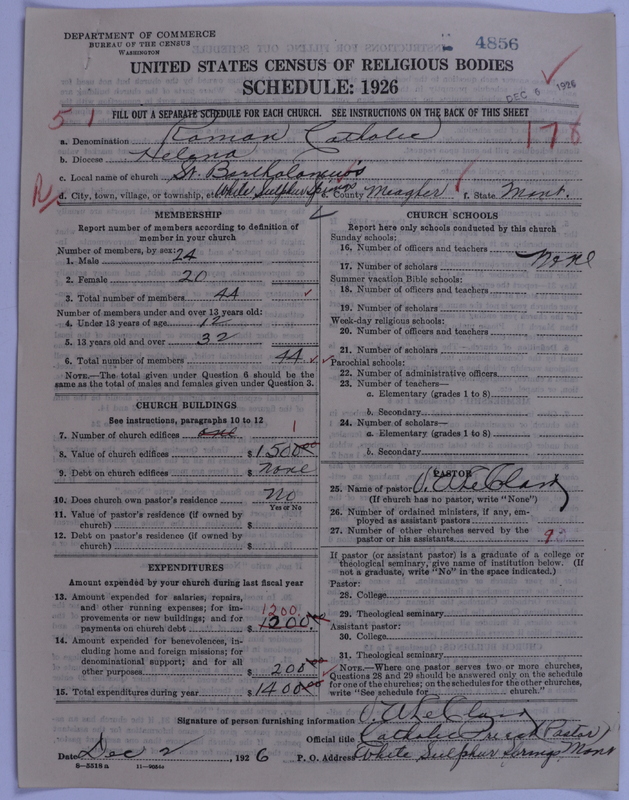 DEPARTMENT OF COMMERCE
BUREAU OF THE CENSUS
WASHINGTON
4856
UNITED STATES CENSUS OF RELIGIOUS BODIES
SCHEDULE: 1926
DEC 6 1926
FILL OUT A SEPARATE SCHEDULE FOR EACH CHURCH. SEE INSTRUCTIONS ON THE BACK OF THIS SHEET
51
a. Denomination Roman Catholic
b. Diocese Helena
c. Local name of church St. Bartholomew's
d. City, town, village, or township, etc. White Sulphur Springs e. County Meagher f. State Mont.
MEMBERSHIP
Report number of members according to definition of
member in your church
Number of members, by sex:
1. Male 24
2. Female 20
3. Total number of members 44
Number of members under and over 13 years old:
4. Under 13 years of age 12
5. 13 years old and over 32
6. Total number of members 44
NOTE.—The total given under Question 6 should be the
same as the total of males and females given under Question 3.
CHURCH BUILDINGS
See instructions, paragraphs 10 to 12
7. Number of church edifices one 1
8. Value of church edifices $ 1500.00
9. Debt on church edifices $ None
10. Does church own pastor's residence No
Yes or No
11. Value of pastor's residence (if owned by
church) $
12. Debt on pastor's residence (if owned by
church) $
EXPENDITURES
Amount expended by your church during last fiscal year
13. Amount expended for salaries, repairs,
and other running expenses; for im-
provements or new buildings; and for
payments on church debt $ 1200.
1200
14. Amount expended for benevolences, in-
cluding home and foreign missions; for
denominational support; and for all
other purposes $ 200.00
15. Total expenditures during year $ 1400.00
CHURCH SCHOOLS
Report here only schools conducted by this church
Sunday schools:
16. Number of officers and teachers
None
17. Number of scholars
Summer vacation Bible schools:
18. Number of officers and teachers
19. Number of scholars
Week-day religious schools:
20. Number of officers and teachers
21. Number of scholars
Parochial schools:
22. Number of administrative officers
23. Number of teachers—
a. Elementary (grades 1 to 8)
b. Secondary
24. Number of scholars—
a. Elementary (grades 1 to 8)
b. Secondary
PASTOR
25. Name of pastor
(If church has no pastor, write "None")
26. Number of ordained ministers, if any, em-
ployed as assistant pastors
27. Number of other churches served by the
pastor or his assistants
If pastor (or assistant pastor) is a graduate of a college or
theological seminary, give name of institution below. (If
not a graduate, write "No" in the space indicated.)
Pastor:
28. College
29. Theological seminary
Assistant pastor:
30. College
31. Theological seminary
NOTE.—Where one pastor serves two or more churches,
Questions 28 and 29 should be answered only on the schedule
for one of the churches; on the schedules for the other churches,
write "See schedule for church."
Signature of person furnishing information
Official title Catholic Priest (Pastor)
Date Dec 2, 1926 P. O. Address White Sulphur Springs Mont
8—5518 a